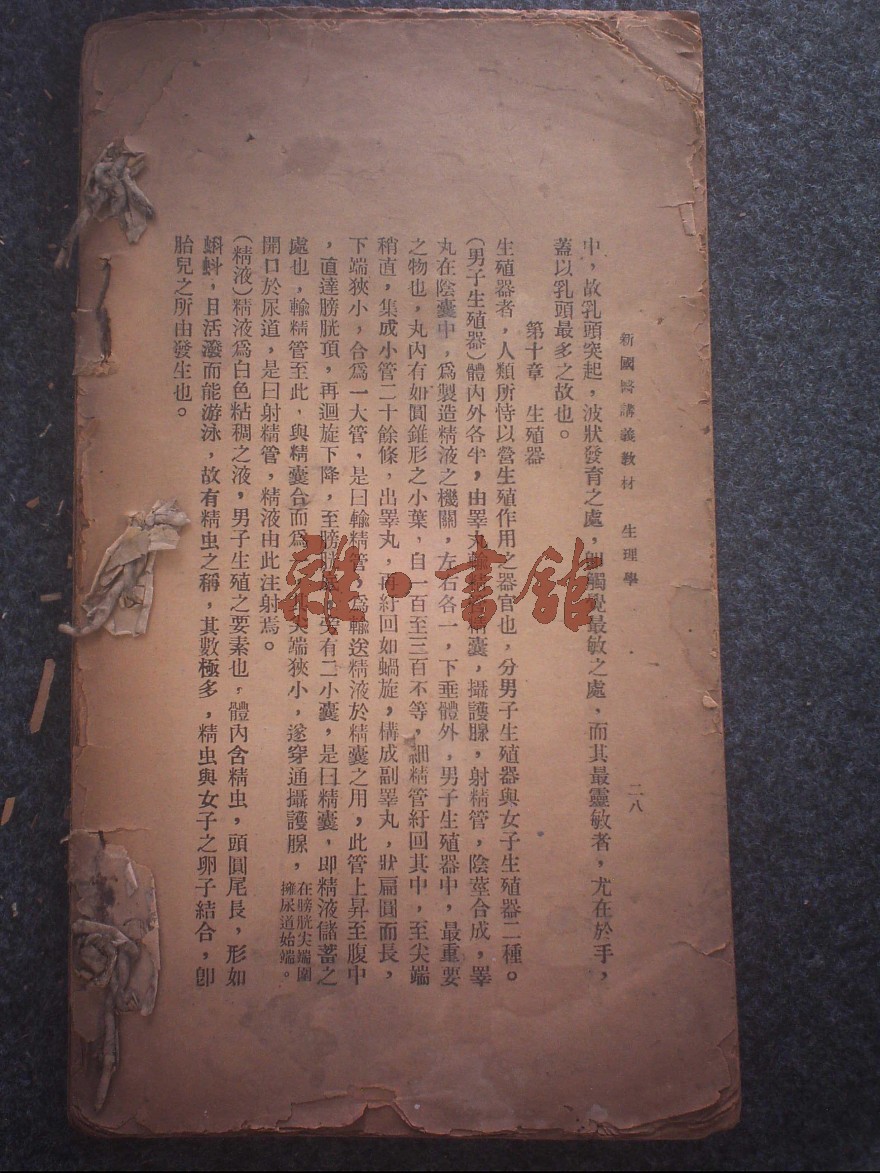 新國醫講義教材　生理學　二八
中，故乳頭突起，波狀發育之處，卽觸覺最敏之處，而其最靈敏者，尤在於手，
蓋以乳頭最多之故也。
第十章　生殖器
生殖器者，人類所恃以營生殖作用之器官也，分男子生殖器與女子生殖器二種。
(男子生殖器)體內外各半，由睪丸輸精管精囊，攝護腺，射精管，陰莖合成，睪
丸在陰囊中，爲製造精液之機關，左右各一，下垂體外，男子生殖器中，最重要
之物也，丸內有如圓錐形之小葉，自一百至三百不等，細精管紆回其中，至尖端
稍直，集成小管二十餘條，出睪丸，再紆回如蝸旋，構成副睪丸，狀扁圓而長，
下端狹小，合爲一大管，是曰輸精管，爲輸送精液於精囊之用，此管上昇至腹中
，直達膀胱頂，再迴旋下降，至膀胱 有二小囊，是曰精囊，卽精液儲蓄之
處也，輸精管至此，與精囊合而爲一，其尖端狹小，遂穿通攝護腺，在膀胱尖端圍擁尿道始端。
開口於尿道，是曰射精管，精液由此注射焉。
(精液)精液爲白色粘稠之液，男子生殖之要素也，體內含精虫，頭圓尾長，形如
蝌蚪，且活潑而能游泳，故有精虫之稱，其數極多，精虫與女子之卵子結合，卽
胎兒之所由發生也。
雜·書館